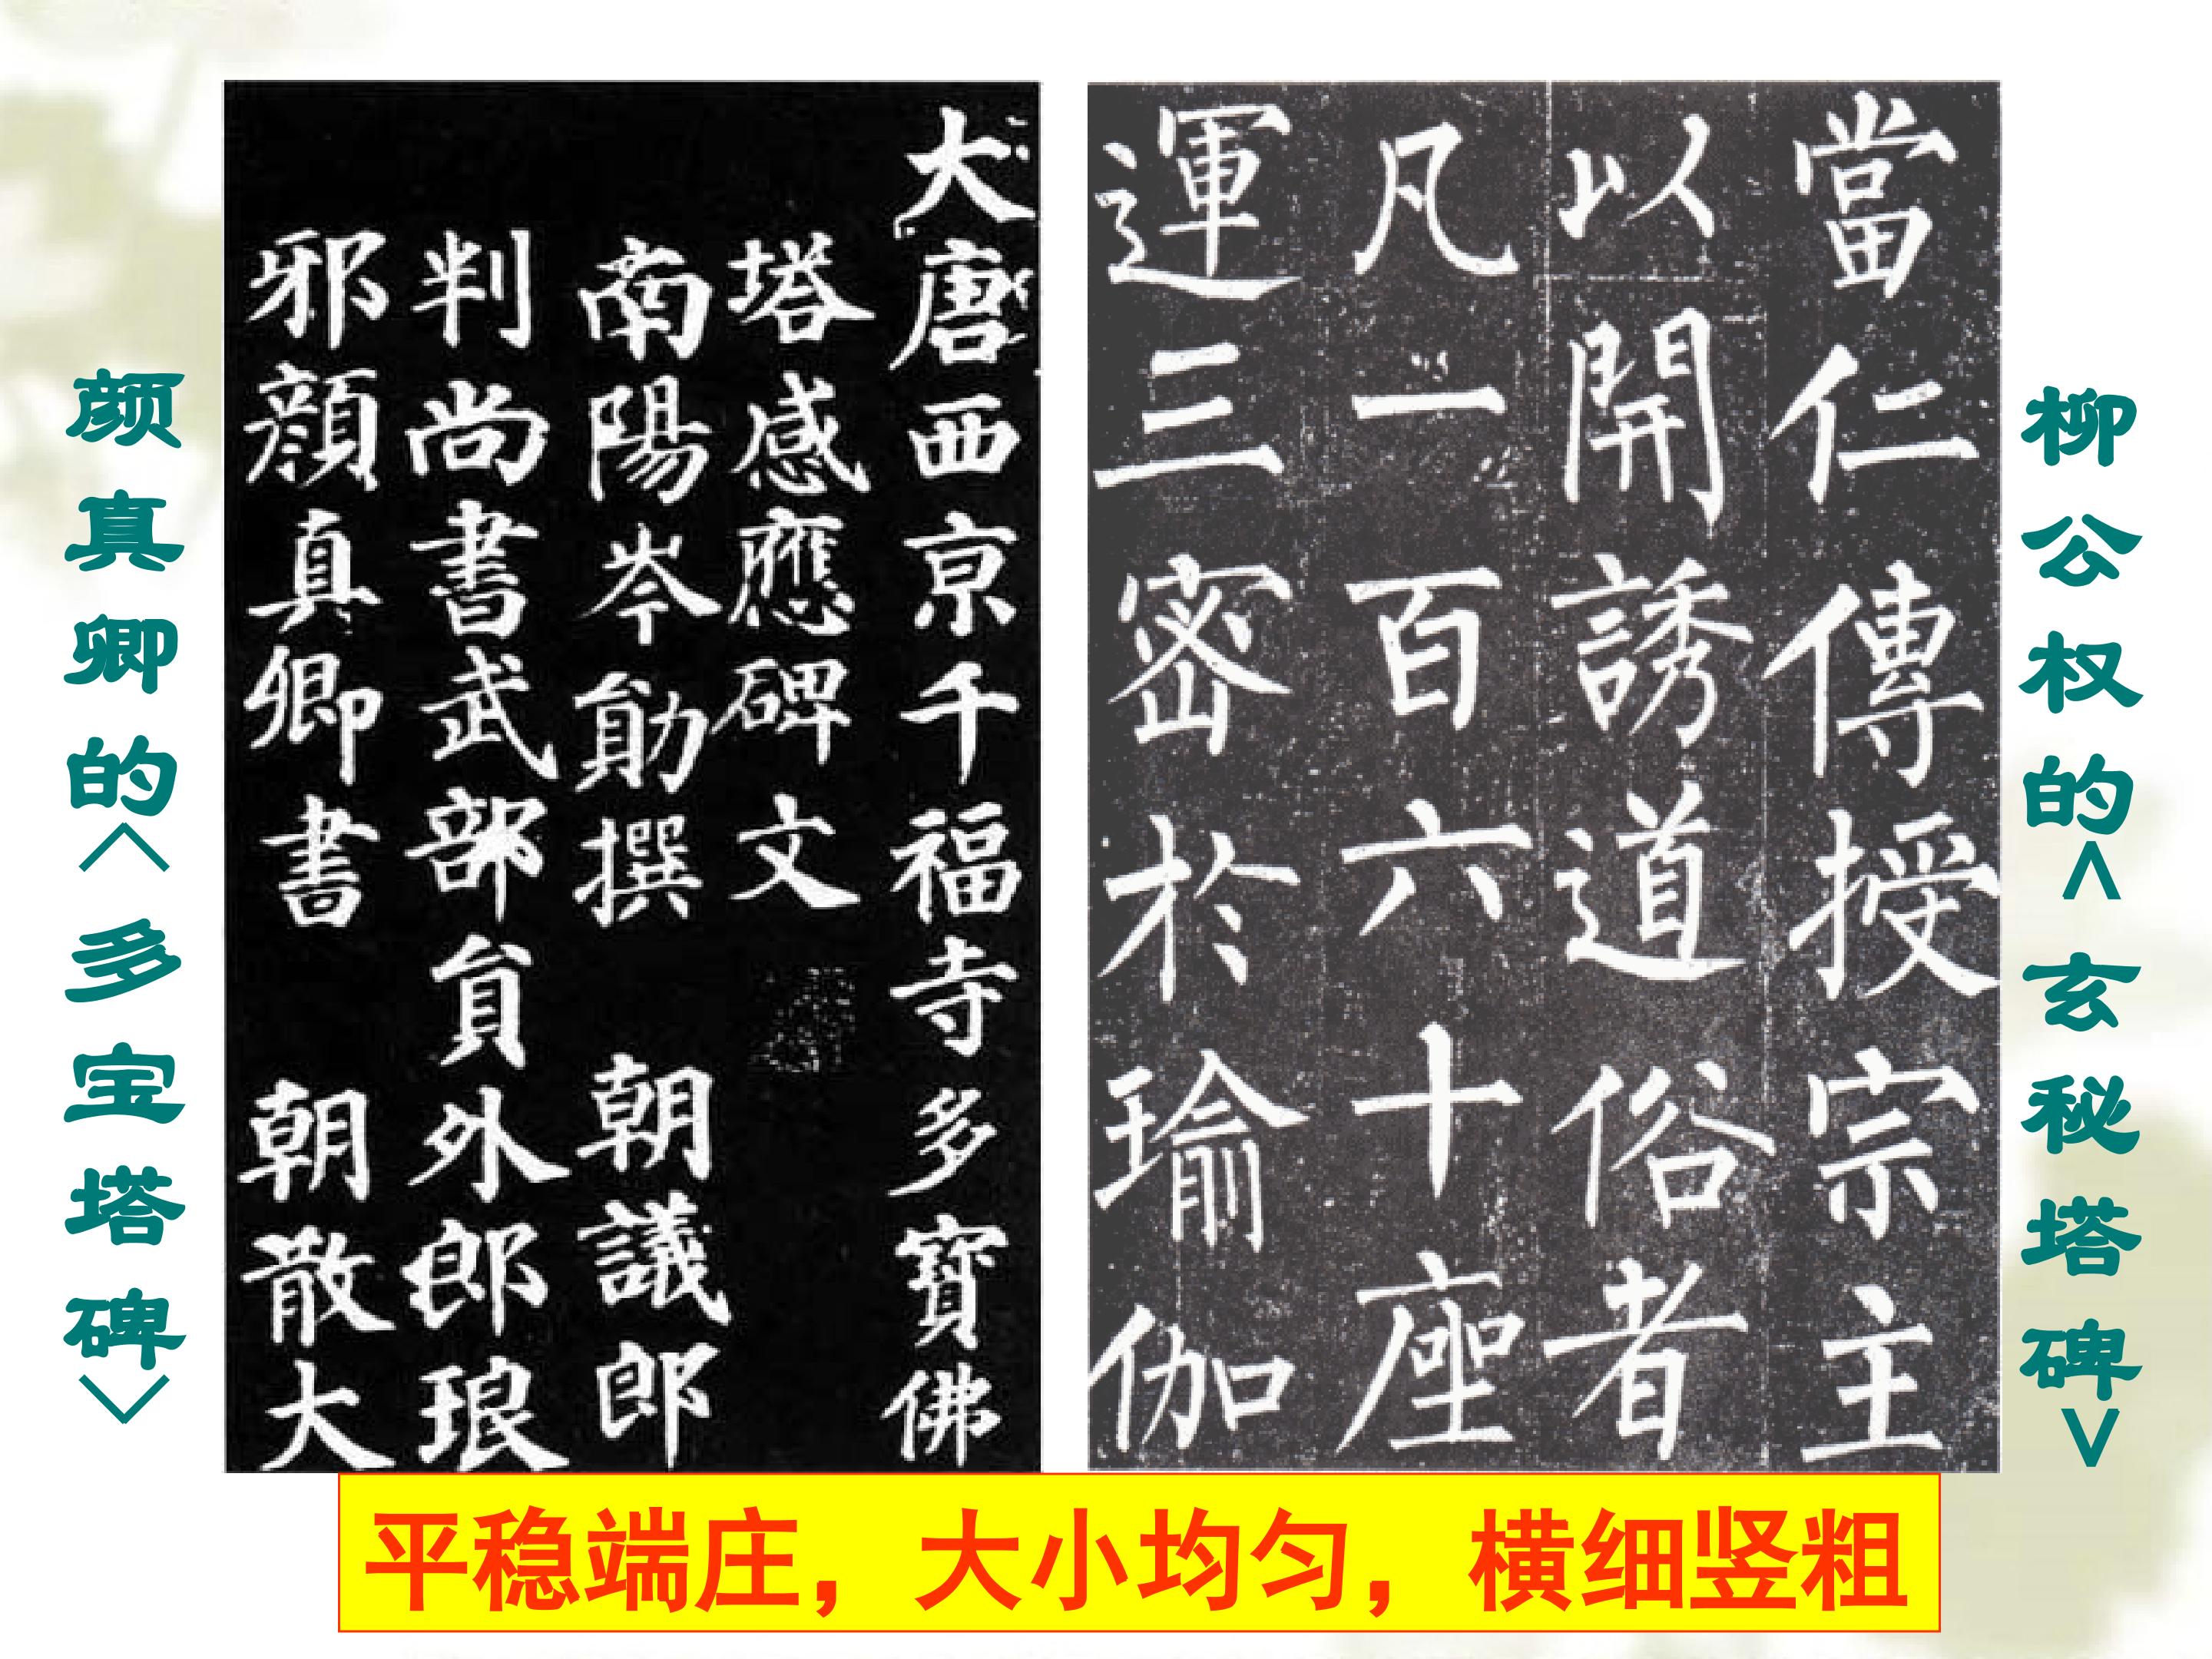 颜真卿的<多宝塔碑>
大唐西京千福寺多寶佛
塔感應碑文
南陽岑勛撰 朝議郎
判尚書武部員外郎琅
邪顏真卿書 朝散大
當仁傳授宗主
以開誘道俗者
凡一百六十座
運三密於瑜伽
柳公权的<玄秘塔碑>
平稳端庄，大小均匀，横细竖粗